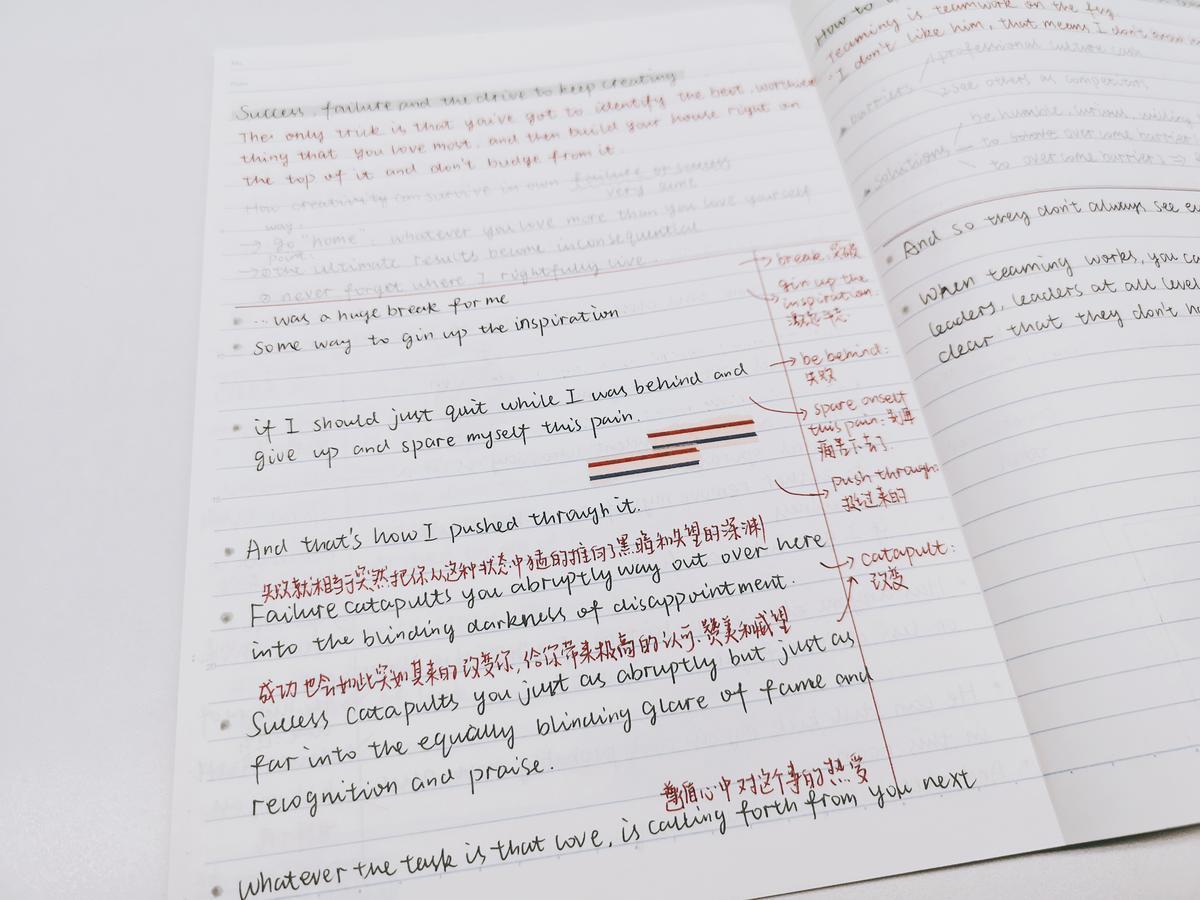 Success, failure and the drive to keep creating
The only trick is that you've got to identify the best, worthiest
thing that you love most, and then build your house right on
the top of it and don't budge from it.
How creativity can survive in own failure or success
very same
way:
→ go "home": whatever you love more than you love yourself
point:
→ ① the ultimate results become inconsequential
② never forget where I rightfully live.
... was a huge break for me
some way to gin up the inspiration
if I should just quit while I was behind and
give up and spare myself this pain.
And that's how I pushed through it.
失败就相当于突然把你从这种状态中猛的推向了黑暗和失望的深渊
Failure catapults you abruptly way out over here
into the blinding darkness of disappointment.
成功也会如此突如其来的改变你,给你带来极高的认可、赞美和威望
Success catapults you just as abruptly but just as
far into the equally blinding glare of fame and
recognition and praise.
遵循心中对这个事的热爱
whatever the task is that love, is calling forth from you next
→ break: 突破
gin up the
inspiration:
→ be behind:
失败
spare oneself
this pain:
痛苦下去了
push through:
挺过来的
→ catapult:
改变
How to
Teaming is teamwork on the fly
I don't like him, that means I don't
barriers
professional culture
see others as competitors
solutions
be humble, curious, willing
to overcome barriers
And so they don't always see
when teaming works, you
leaders, leaders at all
clear that they don't